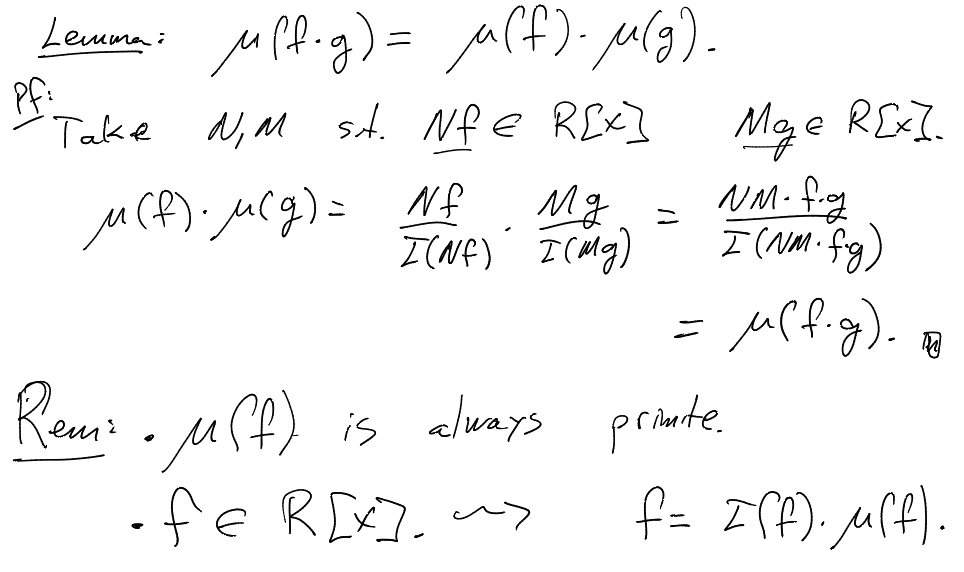 Lemma: μ(f·g) = μ(f)·μ(g).
Pf:
Take N,M s.t. Nf ∈ R[x] Mg ∈ R[x].
μ(f)·μ(g) = Nf/I(Nf) · Mg/I(Mg) = NM·f·g/I(NM·f·g)
= μ(f·g).
Rem: · μ(f) is always primite.
· f ∈ R[x]. ⇝ f = I(f)·μ(f).